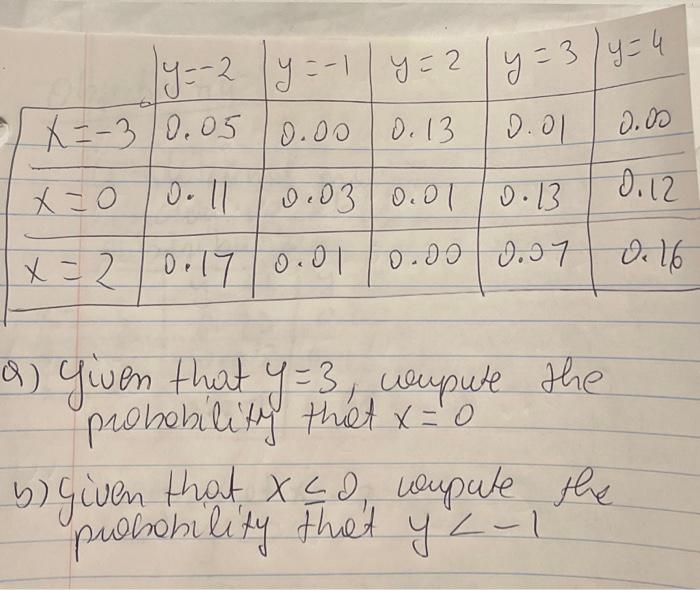 y=-2 y=-1 y=2 y=3 y=4
x=-3 0.05 0.00 0.13 0.01 0.00
x=0 0.11 0.03 0.01 0.13 0.12
x=2 0.17 0.01 0.00 0.07 0.16
a) Given that y=3, compute the
probability that x=0
b) Given that x≤0, compute the
probability that y<-1